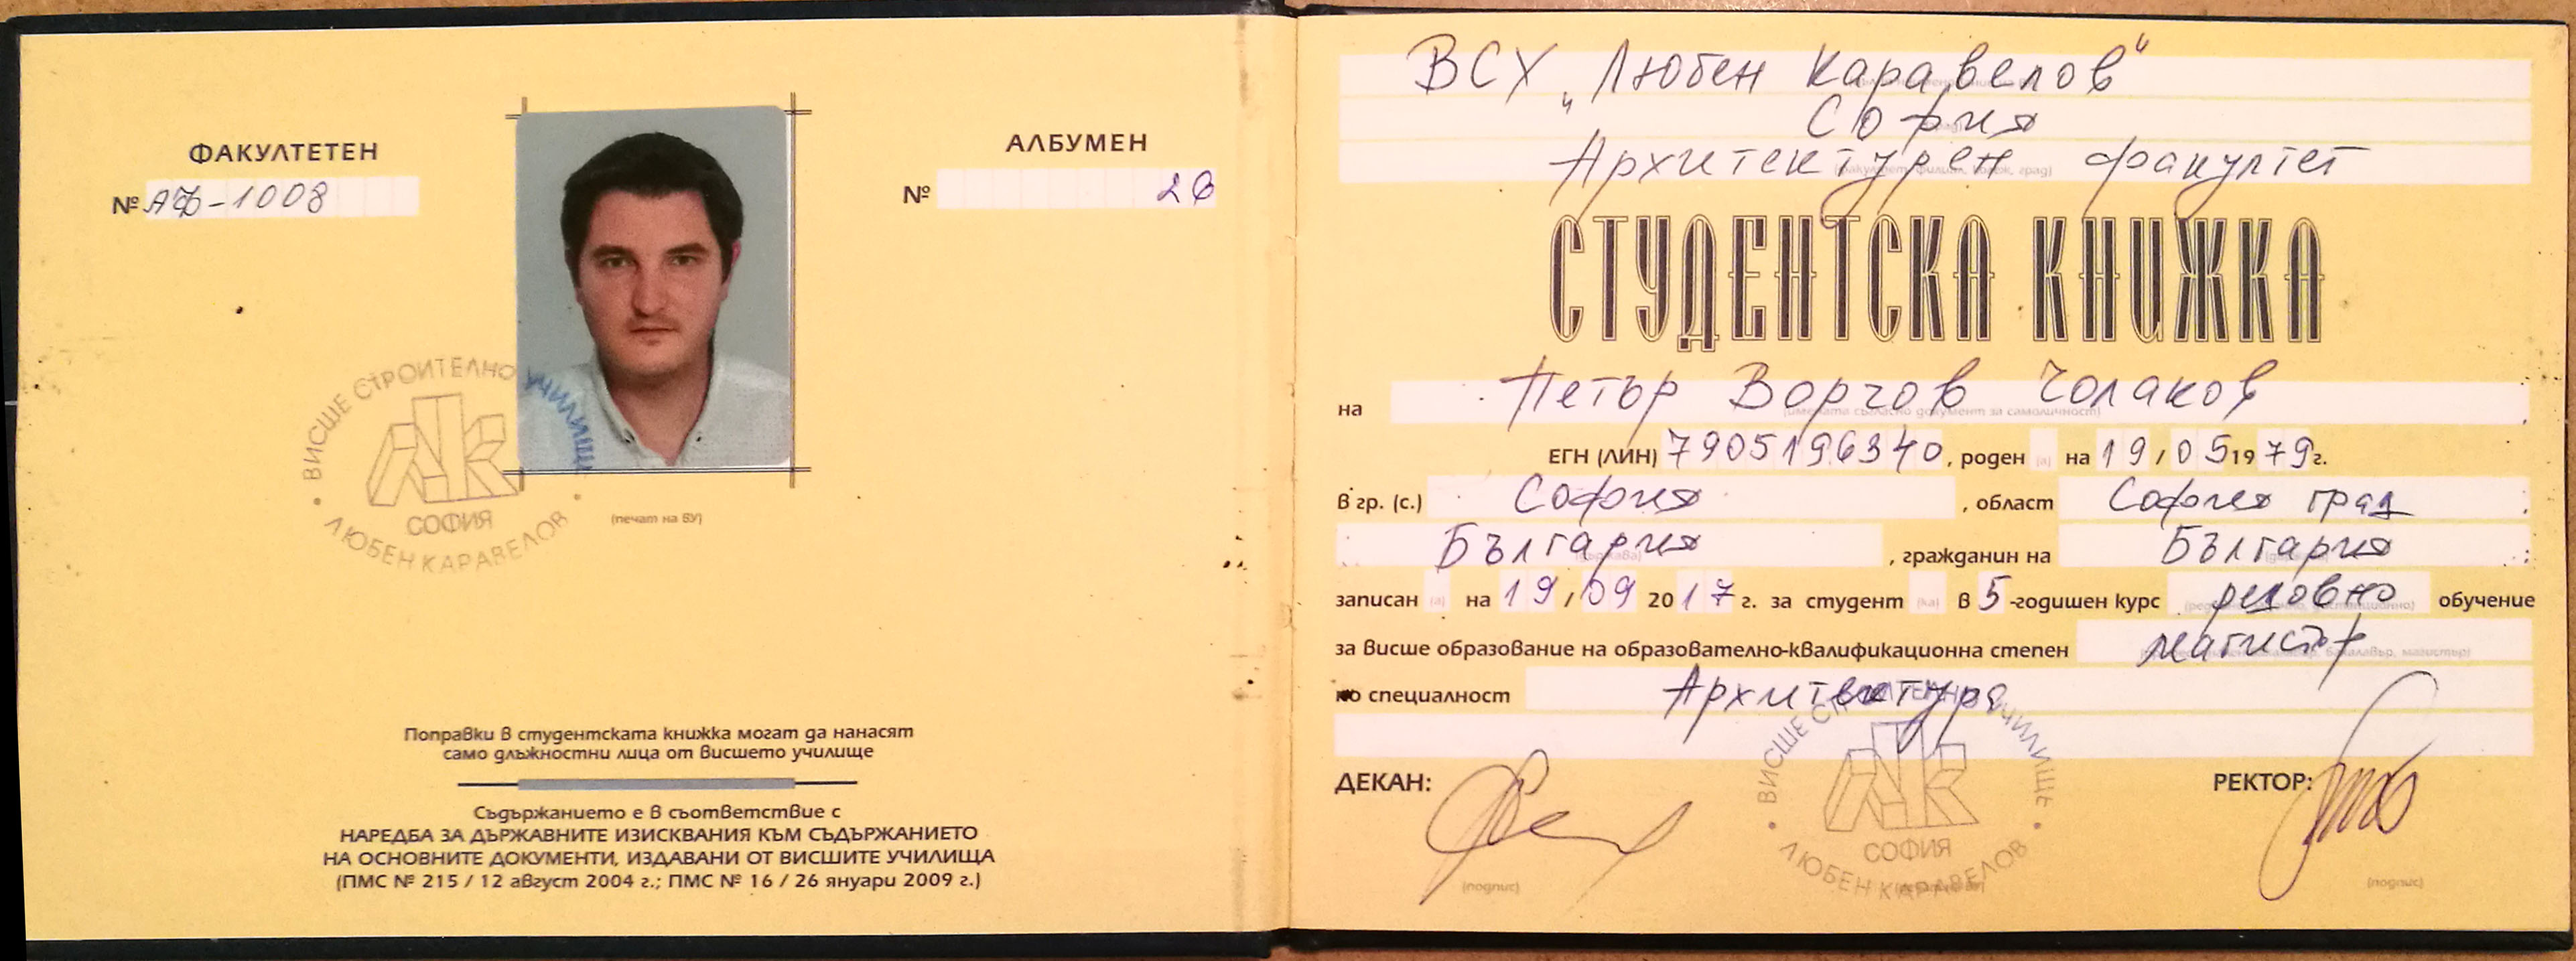 ФАКУЛТЕТЕН
№ АФ-1008
АЛБУМЕН
№ 26
ВИСШЕ СТРОИТЕЛНО УЧИЛИЩЕ
СОФИЯ
• ЛЮБЕН КАРАВЕЛОВ •
(печат на ВУ)
Поправки в студентската книжка могат да нанасят
само длъжностни лица от висшето училище
Съдържанието е в съответствие с
НАРЕДБА ЗА ДЪРЖАВНИТЕ ИЗИСКВАНИЯ КЪМ СЪДЪРЖАНИЕТО
НА ОСНОВНИТЕ ДОКУМЕНТИ, ИЗДАВАНИ ОТ ВИСШИТЕ УЧИЛИЩА
(ПМС № 215 / 12 август 2004 г.; ПМС № 16 / 26 януари 2009 г.)
ВСУ „Любен Каравелов“
София
Архитектурен факултет
СТУДЕНТСКА КНИЖКА
на Петър Чолаков
(имената съгласно документ за самоличност)
ЕГН (ЛИН) 7905196340, роден (а) на 19/05 1979г.
в гр. (с.) София, област София град;
България, гражданин на България;
записан (а) на 19/09 2017 г. за студент (ка) в 5-годишен курс редовно обучение
за висше образование на образователно-квалификационна степен магистър
по специалност Архитектура
ДЕКАН:
РЕКТОР:
ВИСШЕ СТРОИТЕЛНО УЧИЛИЩЕ
СОФИЯ
• ЛЮБЕН КАРАВЕЛОВ •
(подпис)
(подпис)